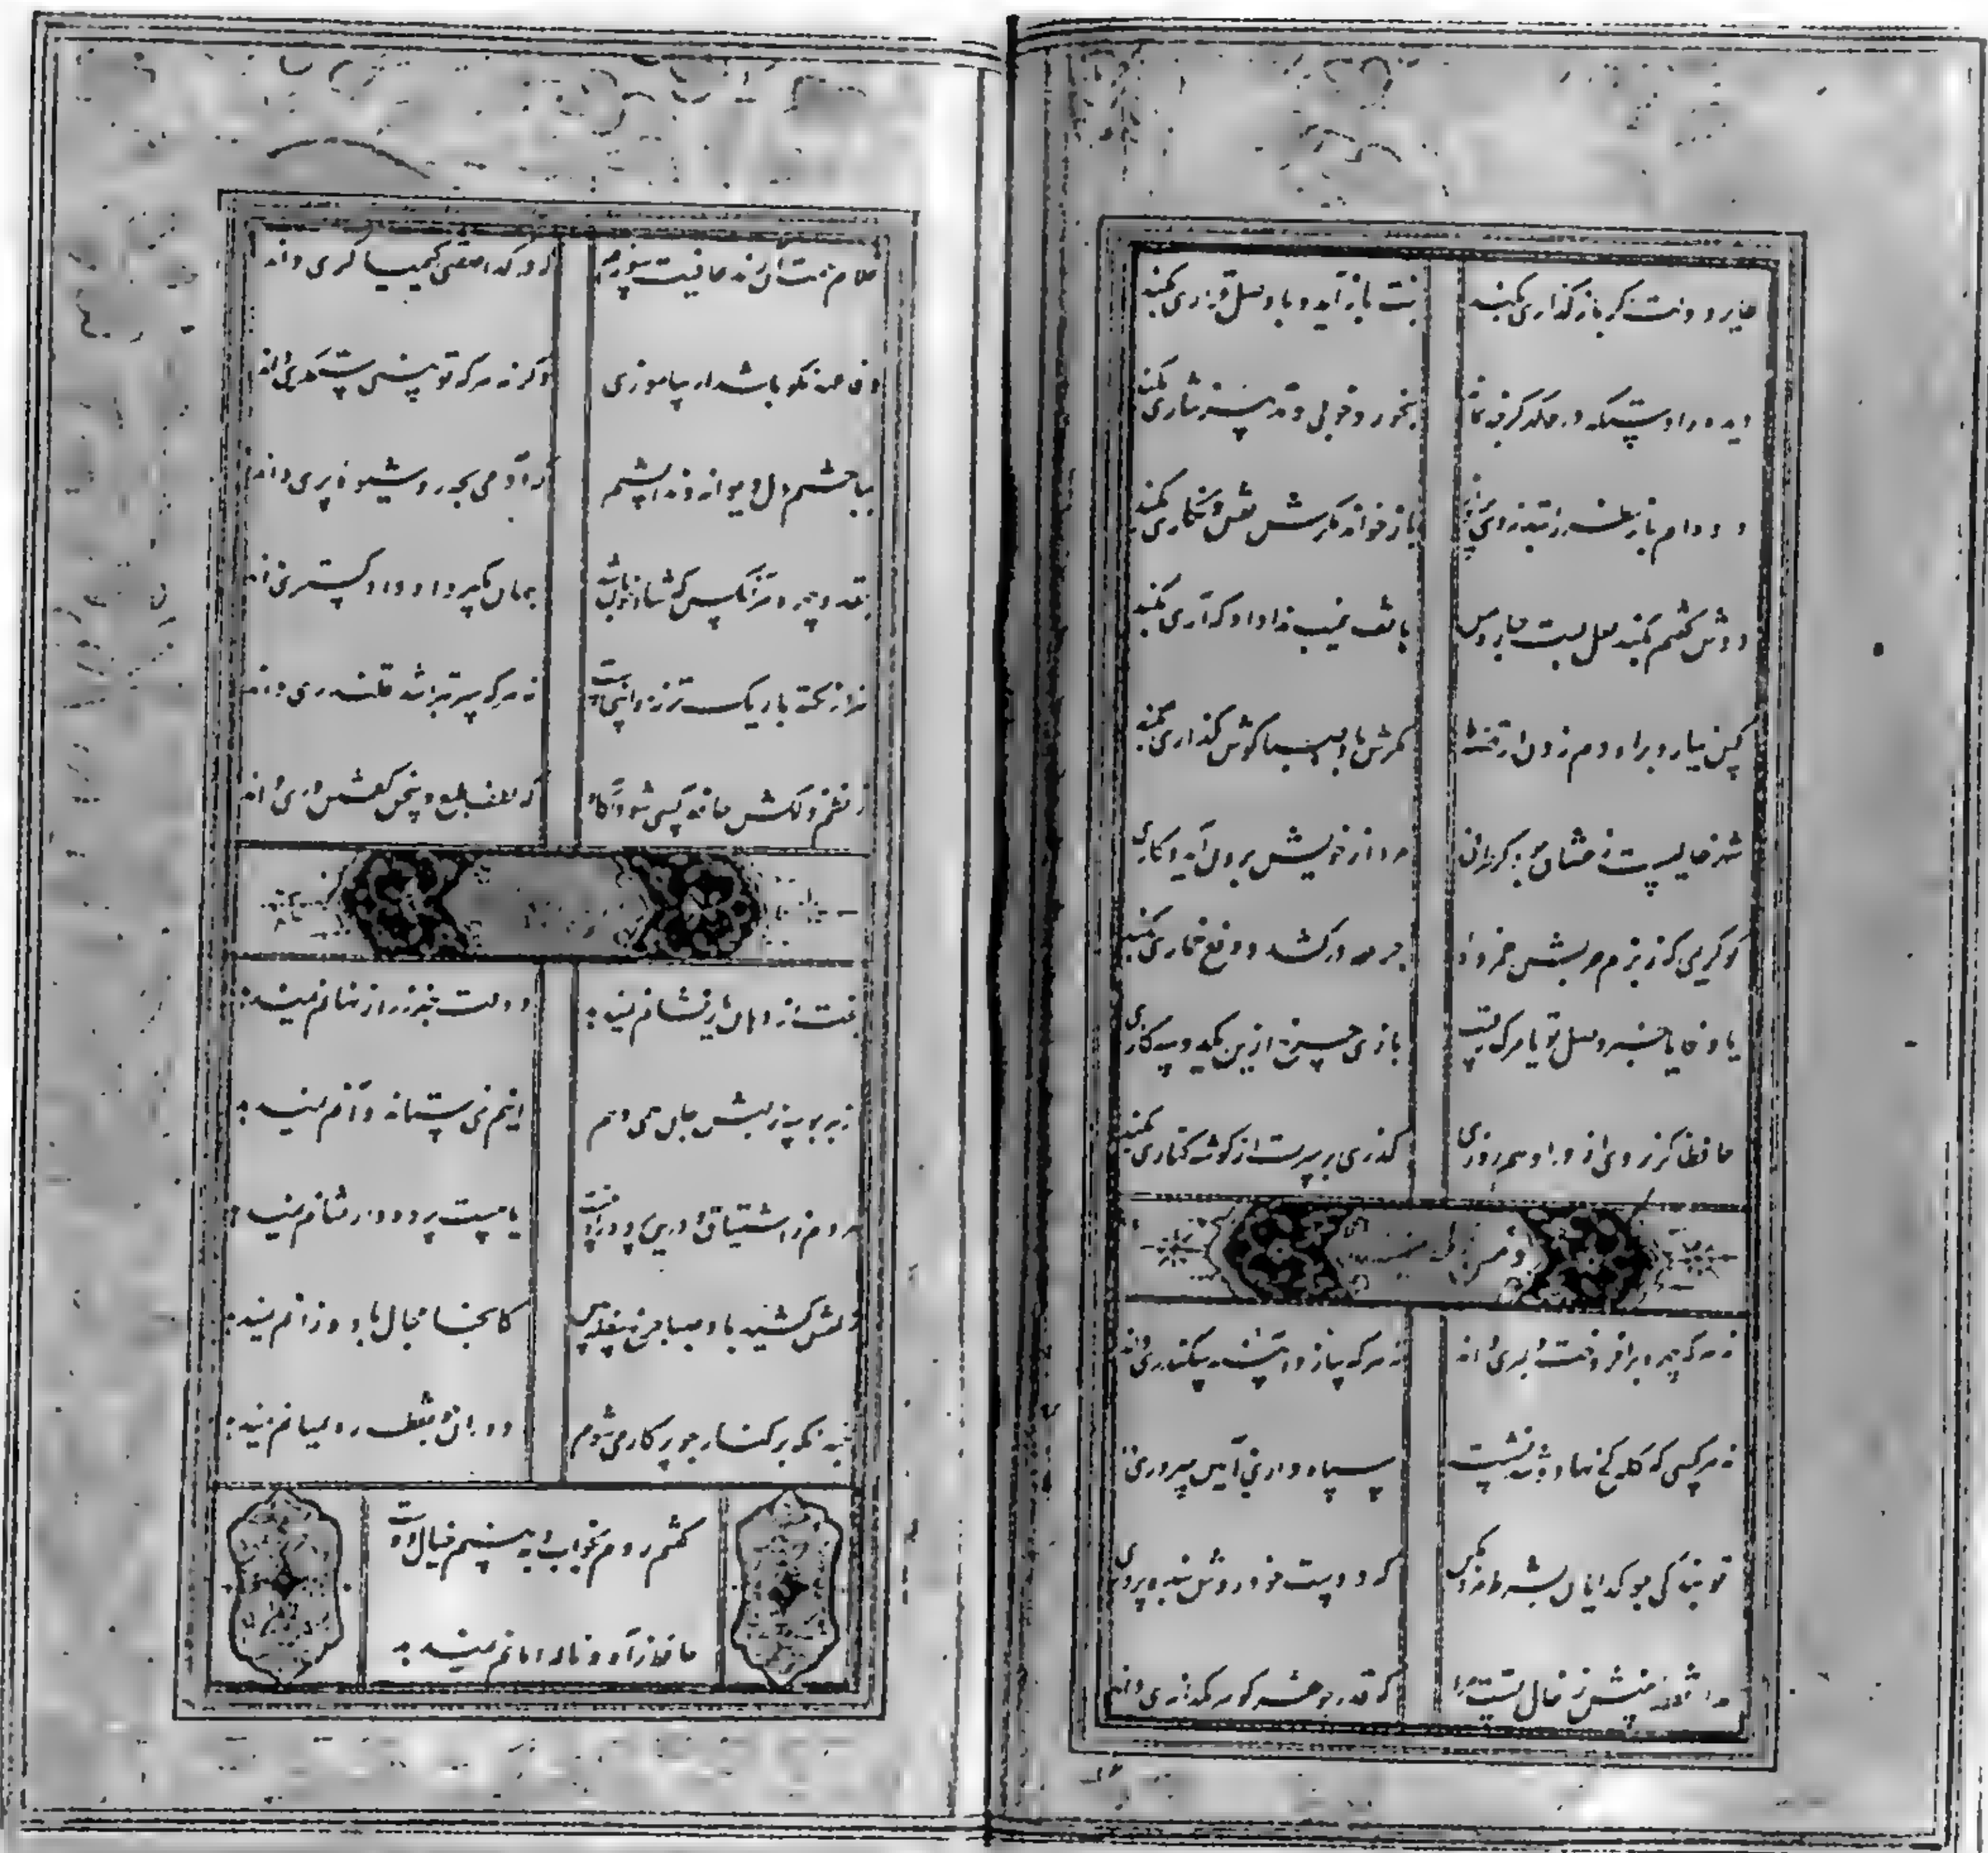 طایر دولت اگر باز گذاری بکند
بخت باز آید و با وصل قراری بکند
دیده را دستگه در و گهر گرچه نماند
بخورد خونی و تدبیر نثاری بکند
باز خواند مگرش نقش و نگاری بکند
دوش گفتم بکند لعل لبت چاره من
هاتف غیب ندا داد که آری بکند
کس نیارد بر او دم زدن از قصه ما
مگرش باد صبا گوش گذاری بکند
شهر خالیست ز عشاق بود کز طرفی
مردی از خویش برون آید و کاری بکند
کو کریمی که ز بزم طربش غمزده
جرعه درکشد و دفع خماری بکند
یا وفا یا خبر وصل تو یا مرگ رقیب
بازی چرخ ازین یک دو سه کاری بکند
حافظا گر نروی از در او هم روزی
گذری بر سرت از گوشه کناری بکند
نه هر که چهره برافروخت دلبری داند
نه هر که آینه سازد سکندری داند
نه هر کسی که کله کج نهاد و تند نشست
کلاه داری و آیین سروری داند
تو بندگی چو گدایان بشرط مزد مکن
که دوست خود روش بنده پروری داند
مدار نقطه بینش ز خال تست مرا
که قدر گوهر یکدانه گوهری داند
غلام همت آن رند عافیت سوزم
که در گدا صفتی کیمیاگری داند
وفا و عهد نکو باشد ار بیاموزی
وگرنه هر که تو بینی ستمگری داند
بباختم دل دیوانه و ندانستم
که آدمی بچه شیوه پری داند
بقد و چهره هر آنکس که شاه خوبان شد
جهان بگیرد اگر دادگستری داند
هزار نکته باریکتر ز مو اینجاست
نه هر که سر بتراشد قلندری داند
ز نظم دلکش حافظ کسی شود آگاه
که لطف طبع و سخن گفتن دری داند
بخت از دهان یار نشانم نمیدهد
دولت خبر ز راز نهانم نمیدهد
از بهر بوسه ز لبش جان همی دهم
اینم نمی ستاند و آنم نمیدهد
مردم ز اشتیاق و درین پرده راه نیست
یا هست پرده دار نشانم نمیدهد
زلفش کشید باد صبا چرخ سفله بین
کانجا مجال باد وزانم نمیدهد
چندانکه بر کنار چو پرگار می شوم
دوران چو نقطه ره بمیانم نمیدهد
گفتم روم بخواب و ببینم خیال دوست
حافظ ز آه و ناله امانم نمیدهد